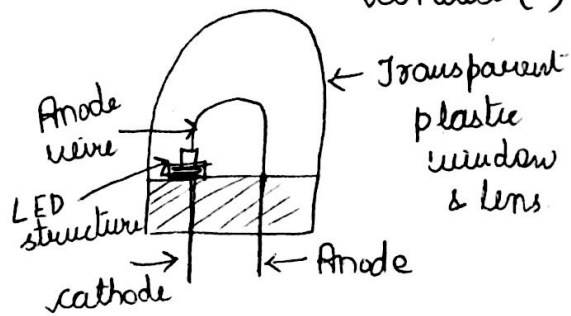 Transparent
plastic
window
& lens
Anode
wire
LED
structure
Anode
cathode